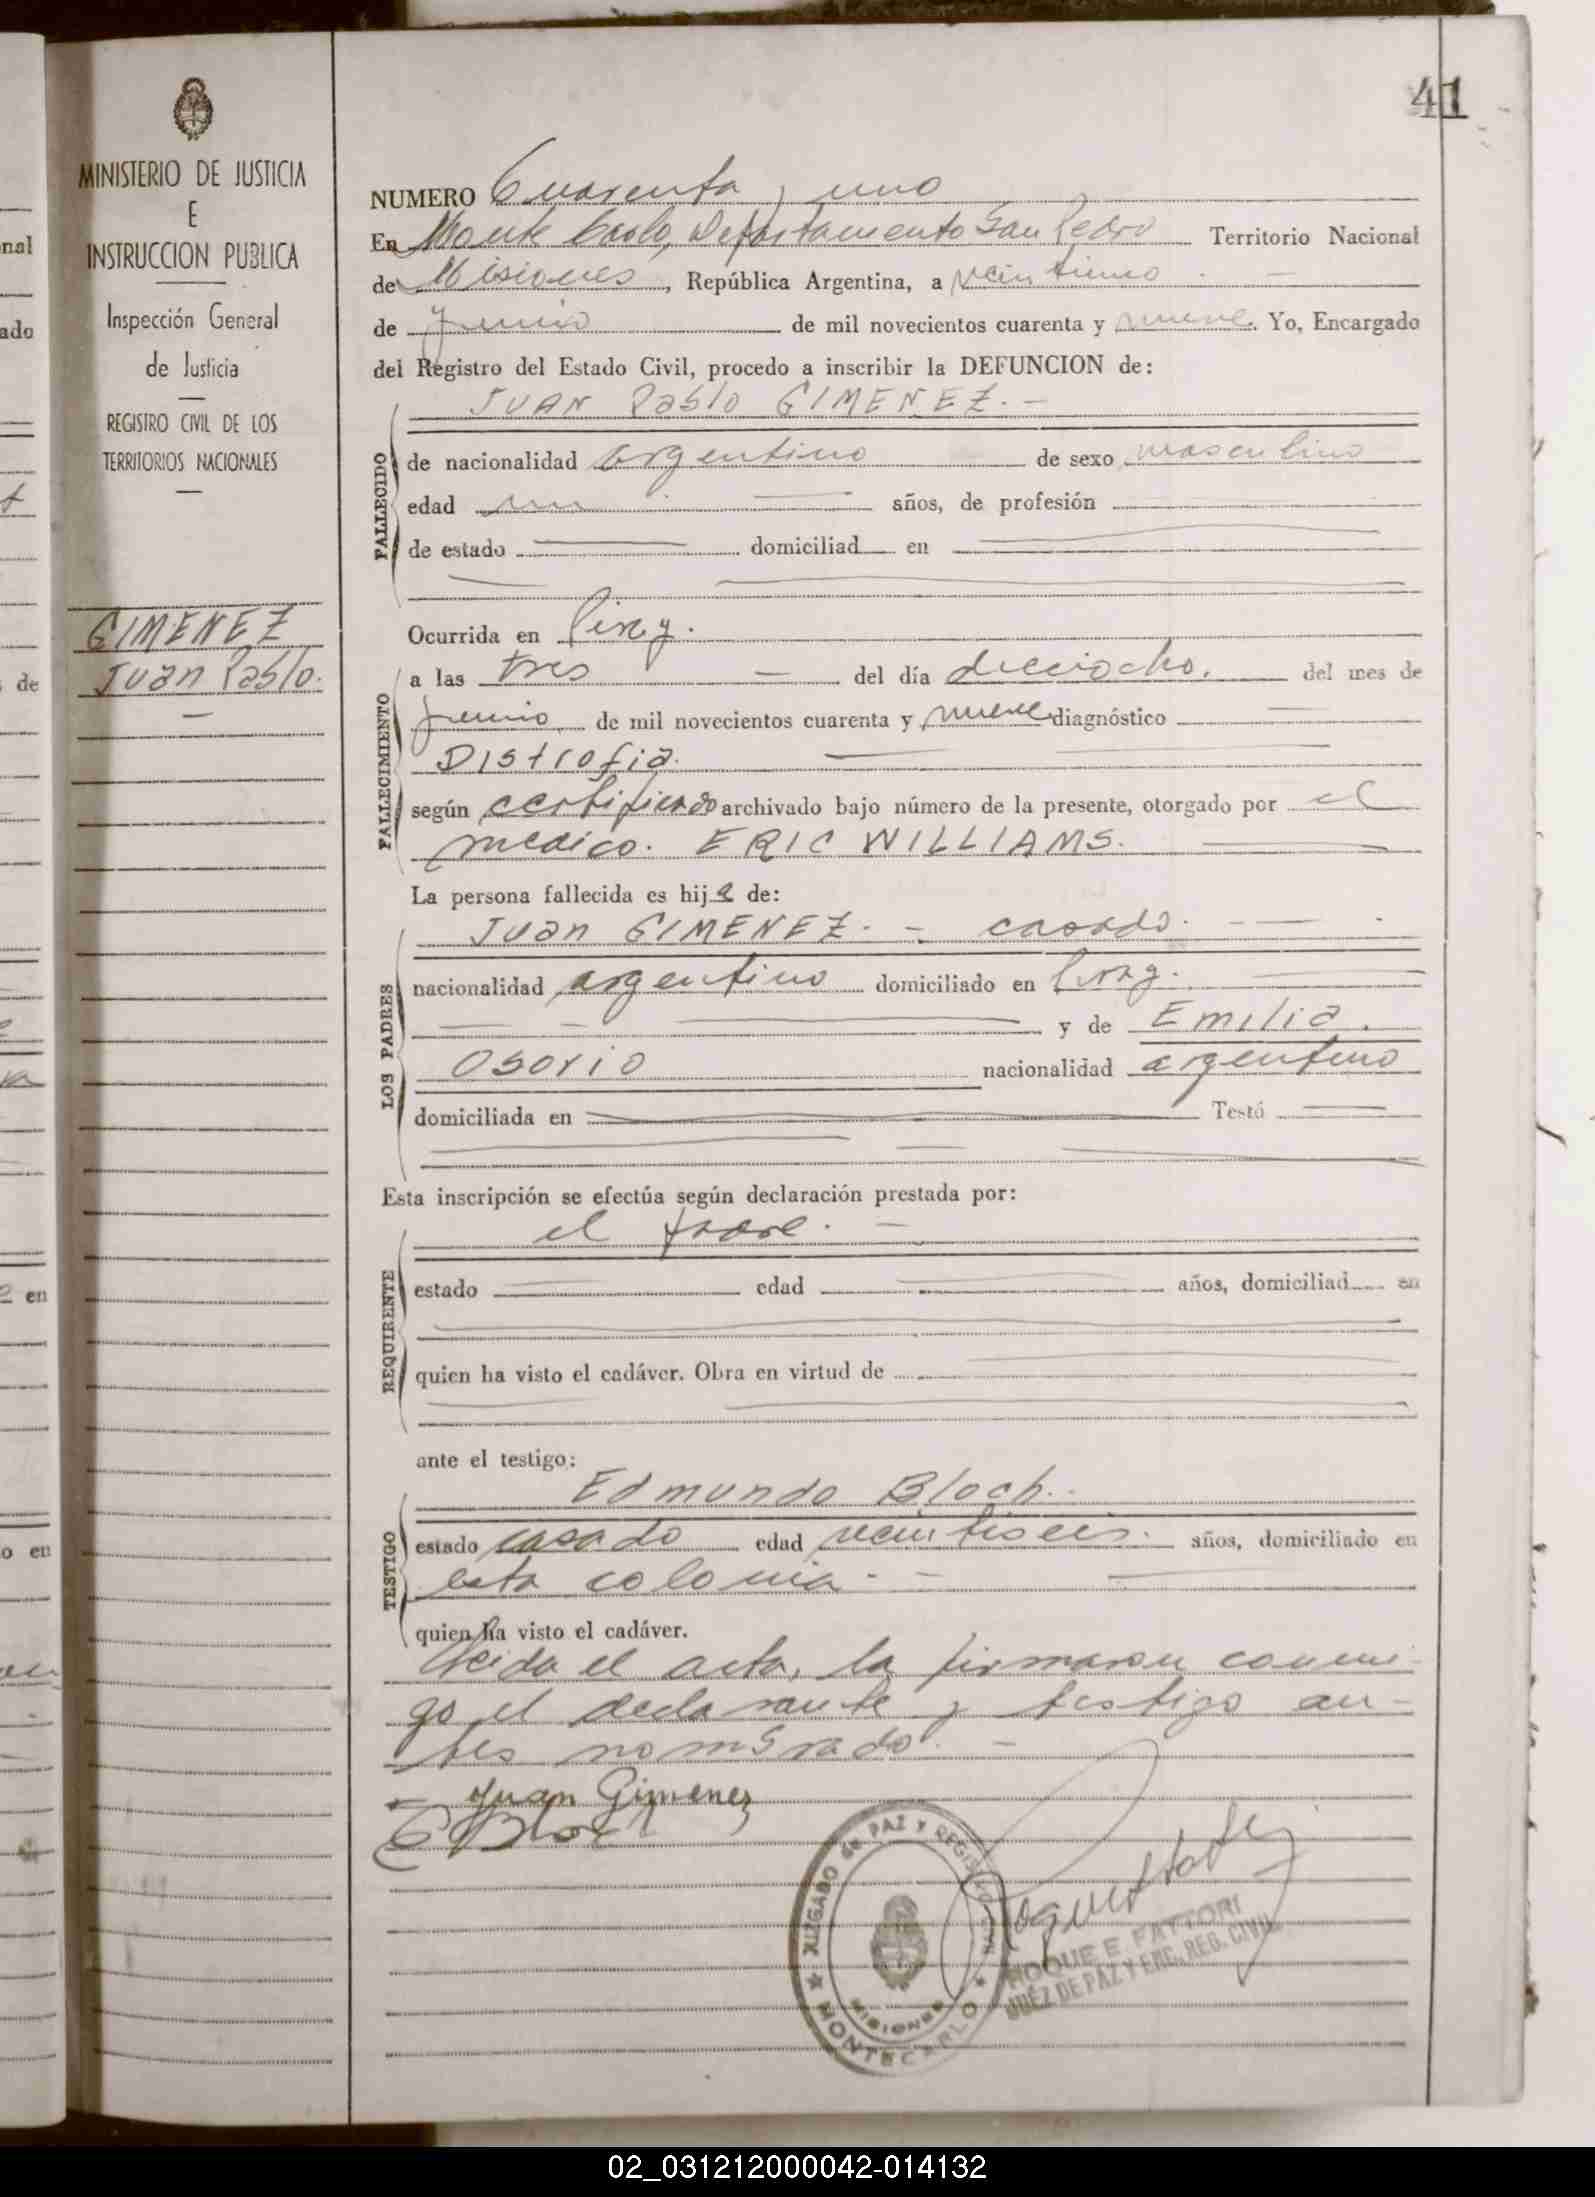 41
MINISTERIO DE JUSTICIA
E
INSTRUCCION PUBLICA
Inspección General
de Justicia
REGISTRO CIVIL DE LOS
TERRITORIOS NACIONALES
GIMENEZ
Juan Pablo.
NUMERO Cuarenta y uno
En Monte Carlo, Departamento San Pedro Territorio Nacional
de Misiones, República Argentina, a veintiuno
de junio de mil novecientos cuarenta y nueve. Yo, Encargado
del Registro del Estado Civil, procedo a inscribir la DEFUNCION de:
JUAN Pablo GIMENEZ. -
FALLECIDO
de nacionalidad argentino de sexo masculino
edad un años, de profesión
de estado domiciliad en
Ocurrida en Piray.
FALLECIMIENTO
a las tres del día dieciocho. del mes de
junio de mil novecientos cuarenta y nueve diagnóstico
Distrofia.
según certificado archivado bajo número de la presente, otorgado por el
medico. ERIC WILLIAMS.
La persona fallecida es hijo de:
LOS PADRES
Juan GIMENEZ. - casado.
nacionalidad argentino domiciliado en Piray.
y de Emilia
Osorio nacionalidad argentino
domiciliada en Testó
Esta inscripción se efectúa según declaración prestada por:
REQUIRENTE
el padre. -
estado edad años, domiciliad en
quien ha visto el cadáver. Obra en virtud de
ante el testigo:
TESTIGO
Edmundo Bloch.
estado casado edad veintiseis. años, domiciliado en
esta colonia. -
quien ha visto el cadáver.
Leida el acta, la firmaron conmi-
go el declarante y testigo an-
tes nombrado. -
Juan Gimenez
E Bloch
JUZGADO de PAZ Y REGISTRO
MISIONES
MONTECARLO
ROQUE E FATTORI
JUEZ DE PAZ Y ENC. REG. CIVIL
02_031212000042-014132